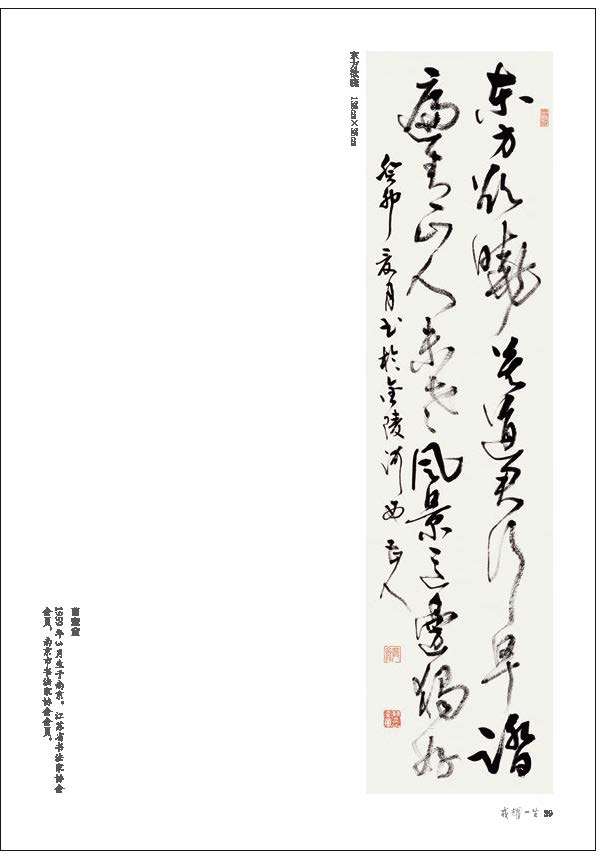 东方欲晓
東方欲曉莫道君行早踏
遍青山人未老风景这邊獨好
癸卯夏月书於金陵河西
1959年3月生于南京。江苏省书法家协会
会员，南京市书法家协会会员。
一生 39